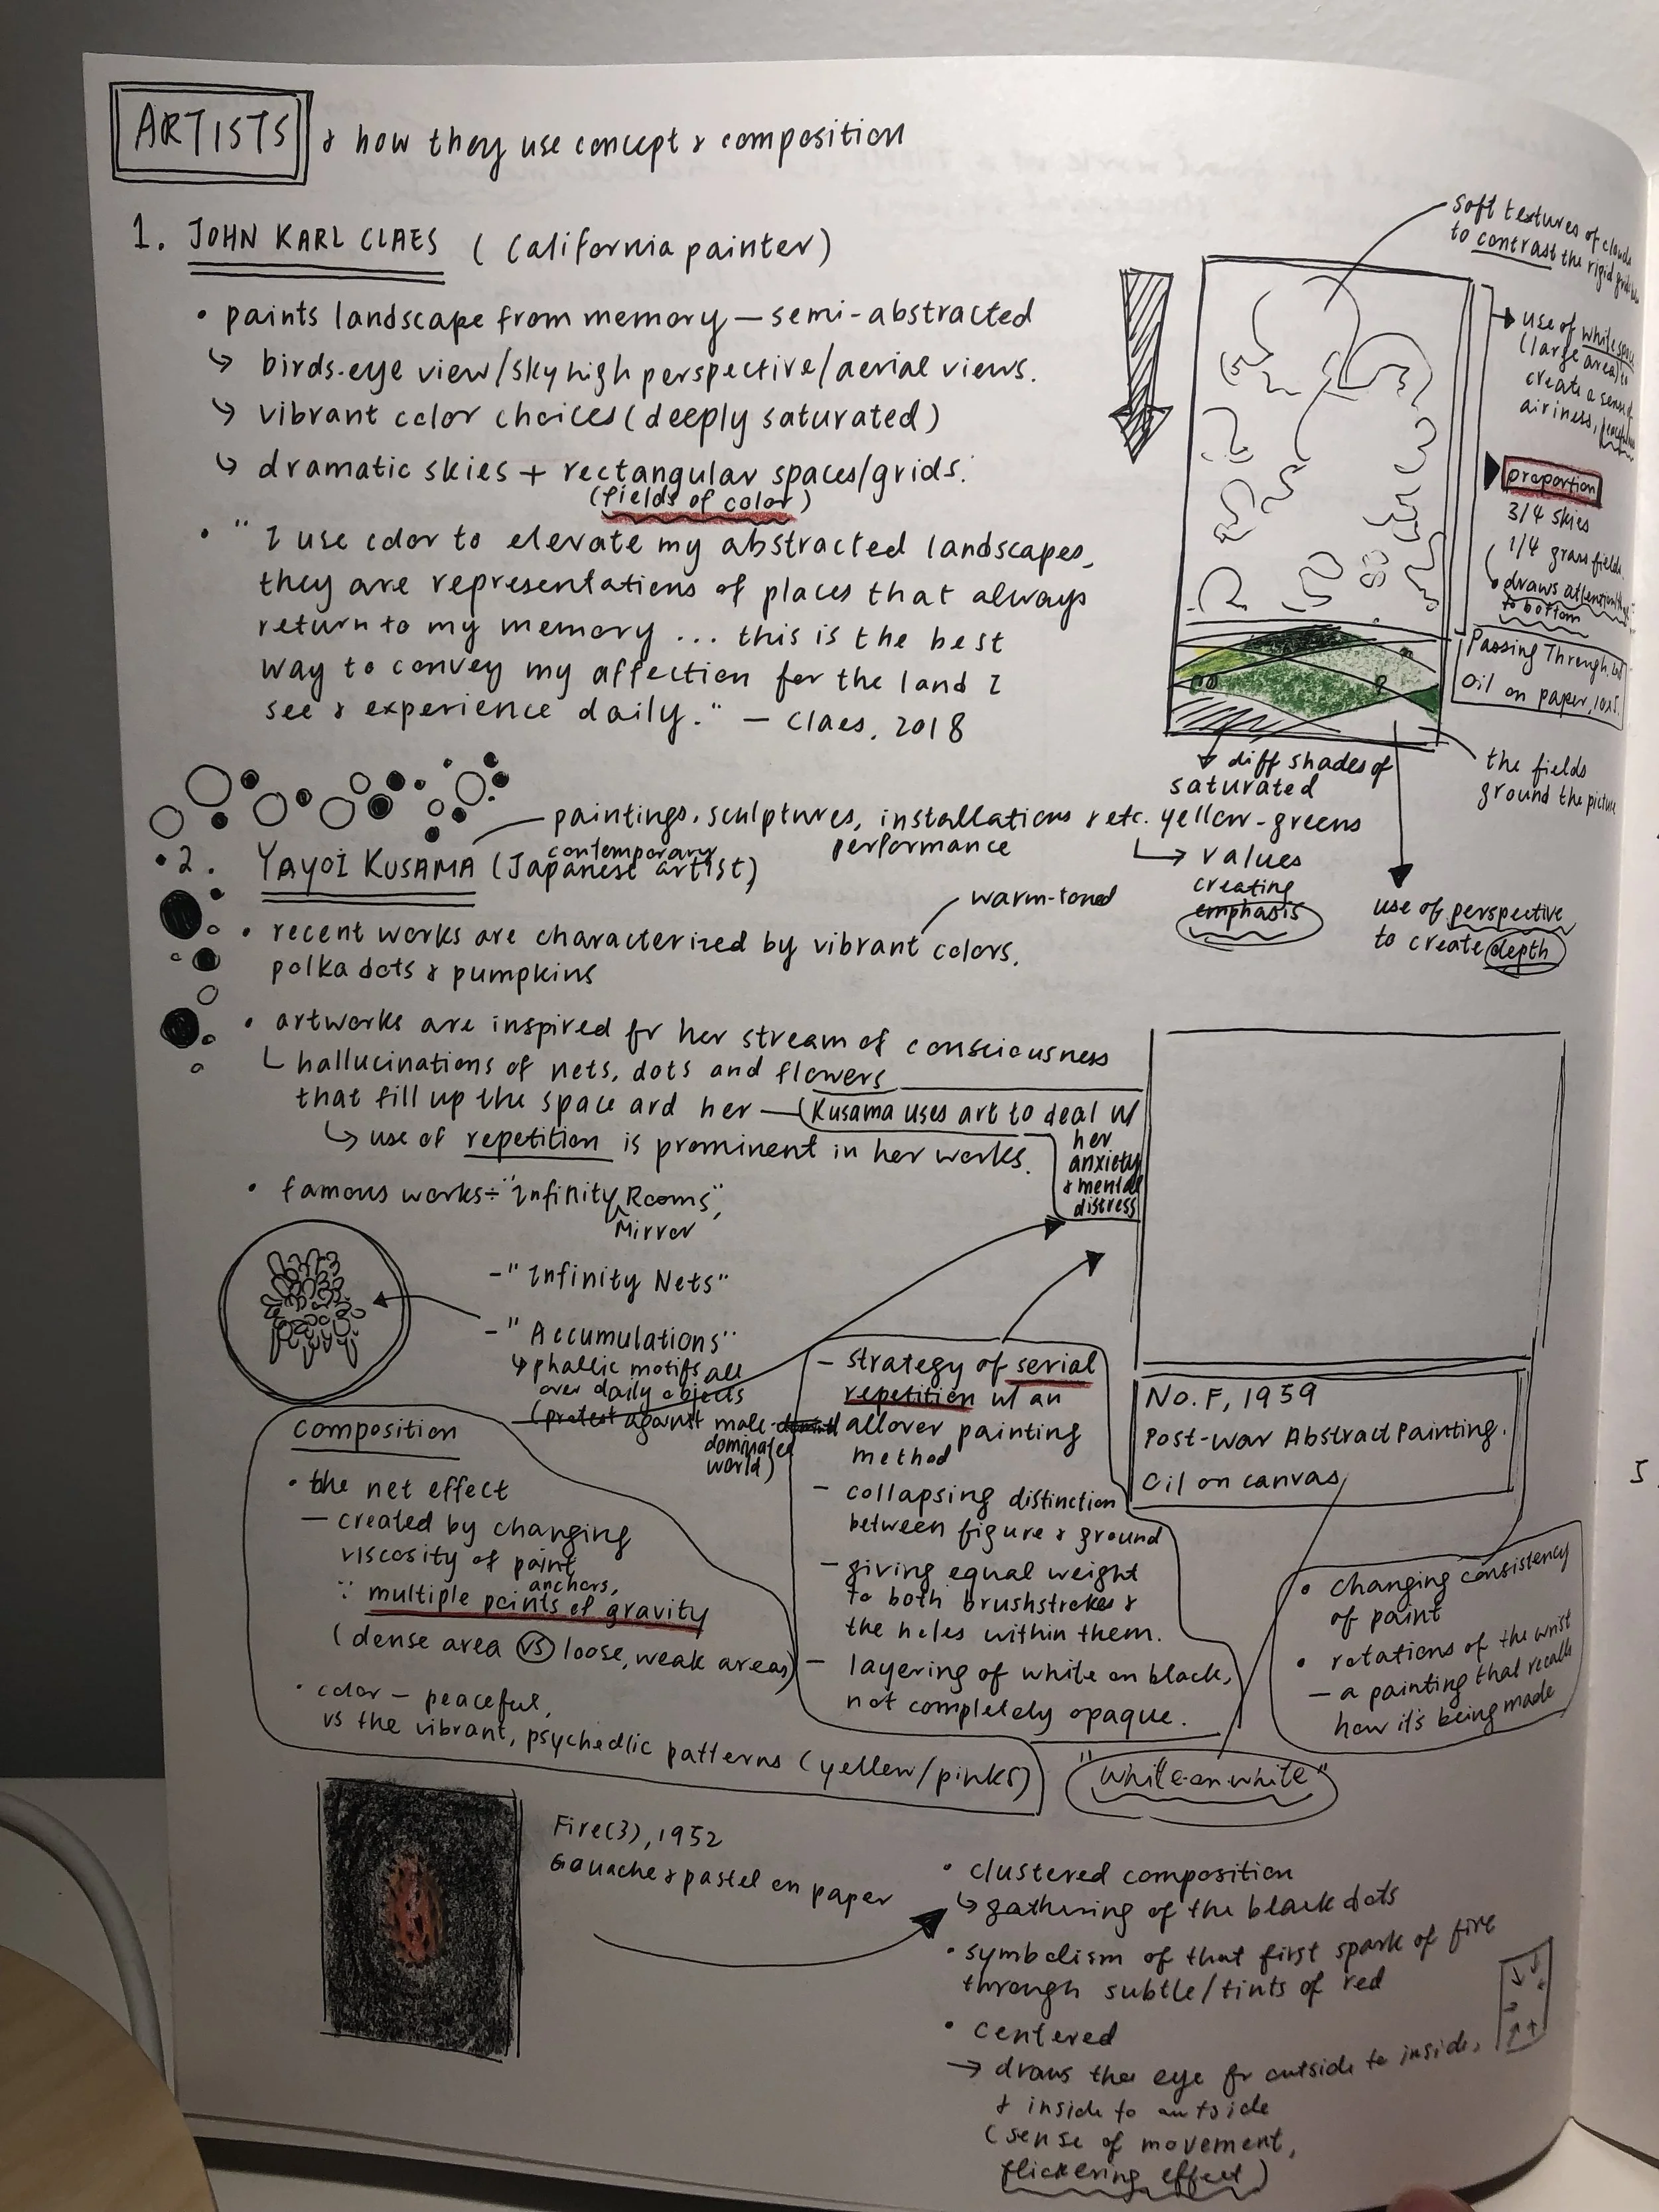 ARTISTS & how they use concept & composition
1. JOHN KARL CLAES (California painter)
• paints landscape from memory — semi-abstracted
↳ birds-eye view/sky high perspective/aerial views.
↳ vibrant color choices (deeply saturated)
↳ dramatic skies + rectangular spaces/grids.
(fields of color)
• "I use color to elevate my abstracted landscapes,
they are representations of places that always
return to my memory ... this is the best
way to convey my affection for the land I
see & experience daily." — Claes, 2018
soft textures of clouds
to contrast the rigid
use of white space
(large area) to
create a sense of
airiness,
proportion
3/4 skies
1/4 grass fields
draws attention
to bottom
Passing Through
Oil on paper,
the fields
ground the picture
diff shades of
saturated
yellow-greens
↳ values
creating
emphasis
use of perspective
to create depth
paintings, sculptures, installations & etc.
performance
2. YAYOI KUSAMA (Japanese artist)
contemporary
warm-toned
• recent works are characterized by vibrant colors,
polka dots & pumpkins
• artworks are inspired fr her stream of consciousness
hallucinations of nets, dots and flowers
that fill up the space ard her — Kusama uses art to deal w/
her
anxiety
& mental
distress
↳ use of repetition is prominent in her works.
• famous works÷ "Infinity Rooms",
Mirror
- "Infinity Nets"
- "Accumulations"
↳ phallic motifs all
over daily objects
(protest against male-
dominated
world)
composition
• the net effect
— created by changing
viscosity of paint
∵ multiple points of gravity
anchors,
(dense area vs loose, weak areas)
• color — peaceful,
vs the vibrant, psychedlic patterns (yellow/pinks)
- strategy of serial
repetition w/ an
allover painting
method
- collapsing distinction
between figure & ground
- giving equal weight
to both brushstrokes &
the holes within them.
- layering of white on black,
not completely opaque.
No. F, 1959
Post-war Abstract Painting.
Oil on canvas
• changing consistency
of paint
• rotations of the wrist
— a painting that recalls
how it's being made
"white-on-white"
Fire(3), 1952
Gouache & pastel on paper
• clustered composition
↳ gathering of the black dots
• symbolism of that first spark of fire
through subtle/tints of red
• centered
→ draws the eye fr outside to inside,
& inside to outside
(sense of movement,
flickering effect)